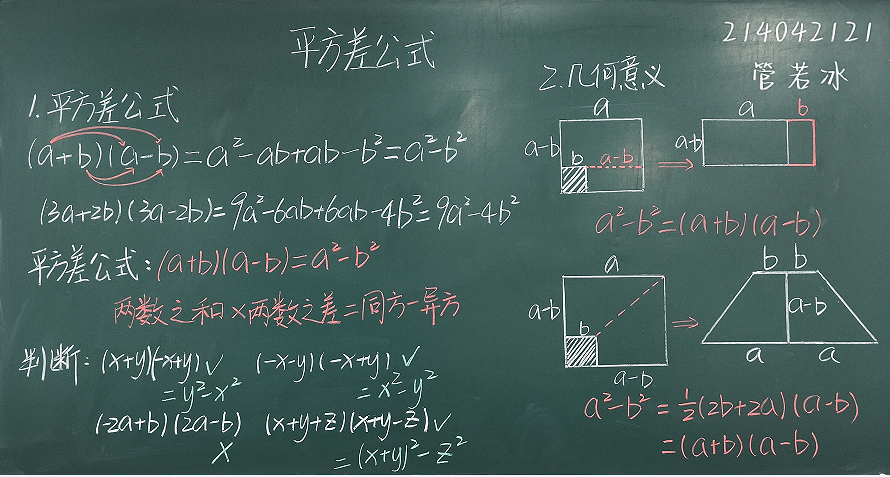 平方差公式
214042121
管若冰
1.平方差公式
(a+b)(a-b)=a²-ab+ab-b²=a²-b²
(3a+2b)(3a-2b)=9a²-6ab+6ab-4b²=9a²-4b²
平方差公式:(a+b)(a-b)=a²-b²
两数之和×两数之差=同方-异方
判断:(x+y)(-x+y)✓ (-x-y)(-x+y)✓
=y²-x² =x²-y²
(-2a+b)(2a-b) (x+y+z)(x+y-z)✓
× =(x+y)²-z²
2.几何意义
a
a-b
b
a-b
⇒
a b
a-b
a²-b²=(a+b)(a-b)
a
a-b
b
a-b
⇒
b b
a-b
a a
a²-b²=½(2b+2a)(a-b)
=(a+b)(a-b)